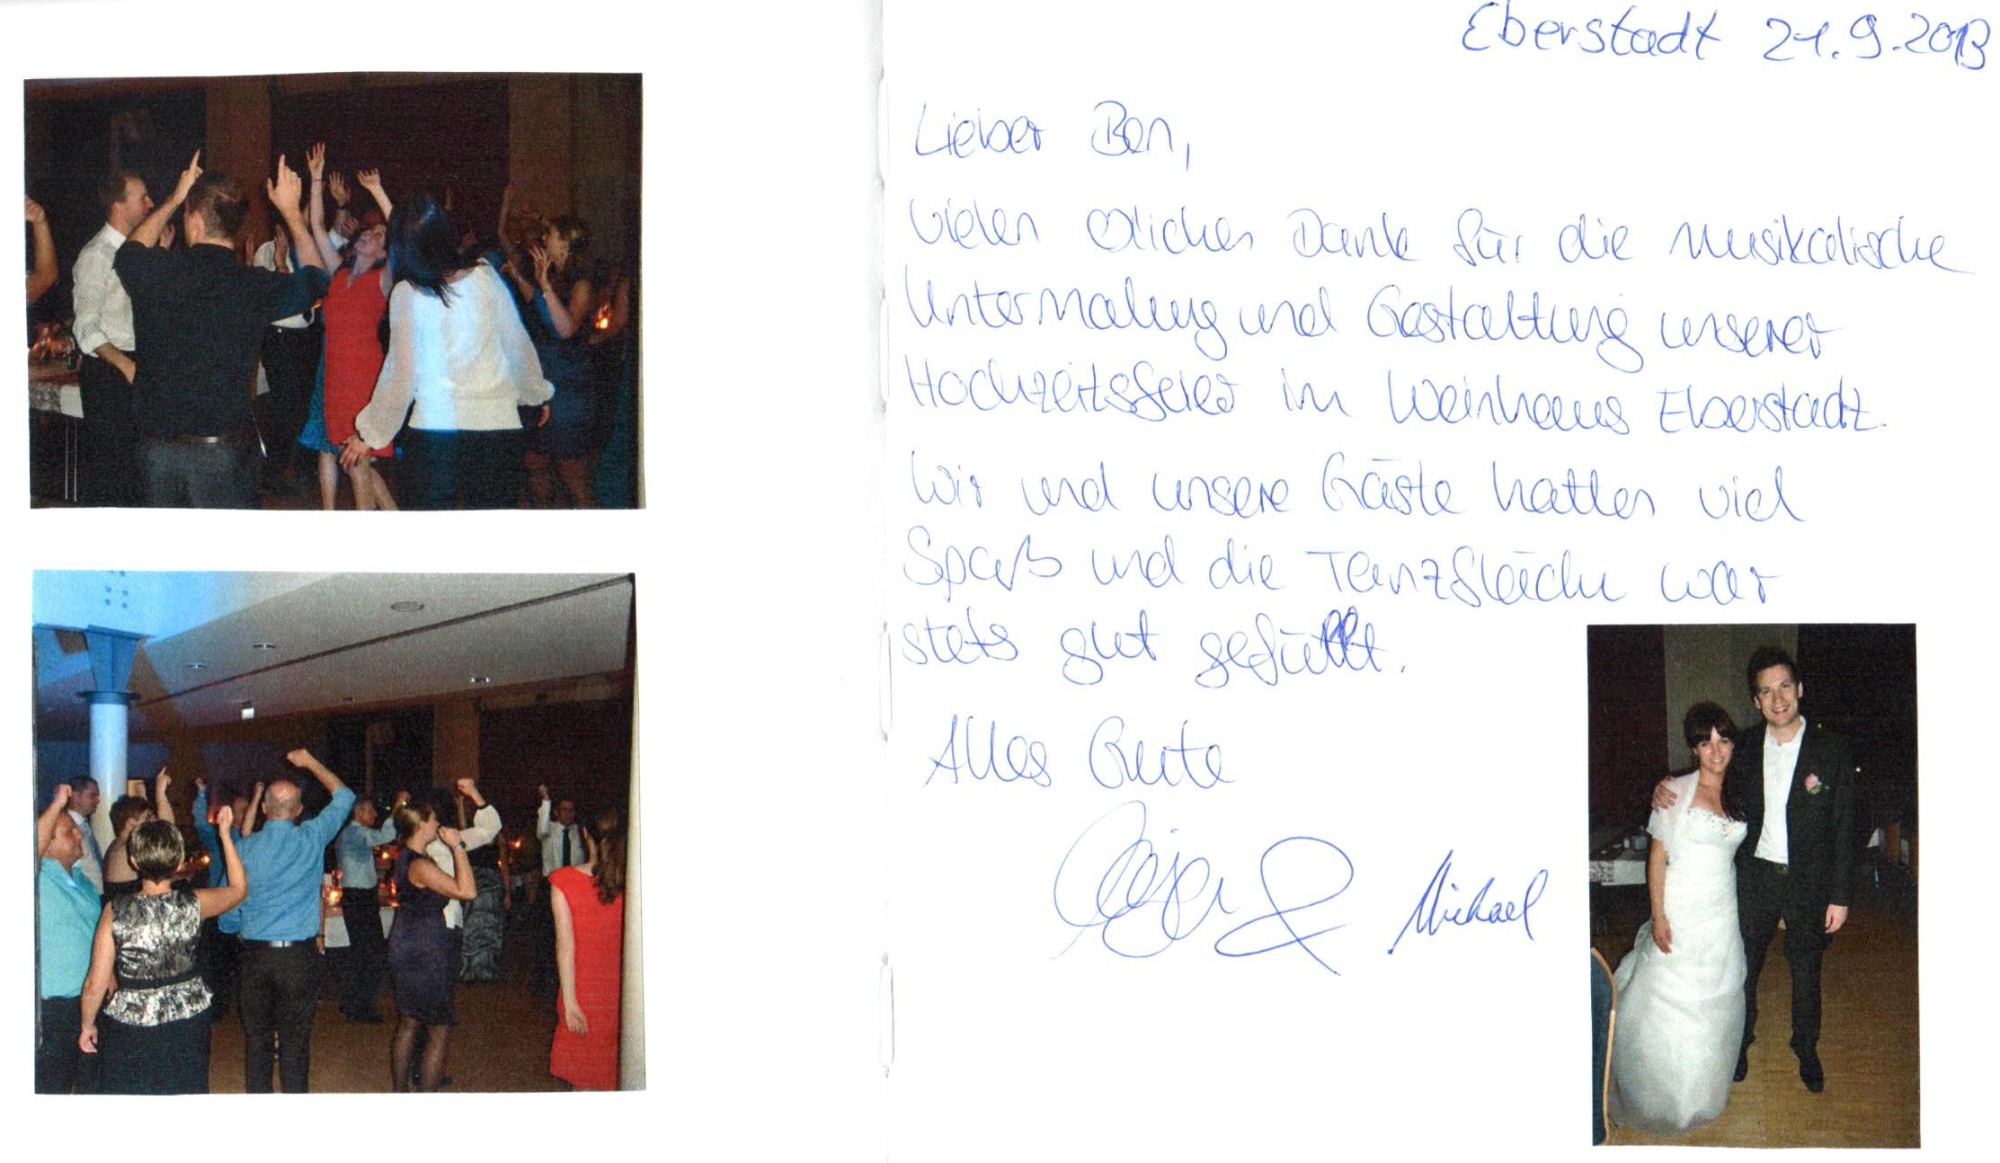 Eberstadt 21.9.2013
Lieber Ben,
vielen ♡lichen Dank für die musikalische
Untermalung und Gestaltung unserer
Hochzeitsfeier im Weinhaus Eberstadt.
Wir und unsere Gäste hatten viel
Spaß und die Tanzfläche war
stets gut gefüllt.
Alles Gute
& Michael